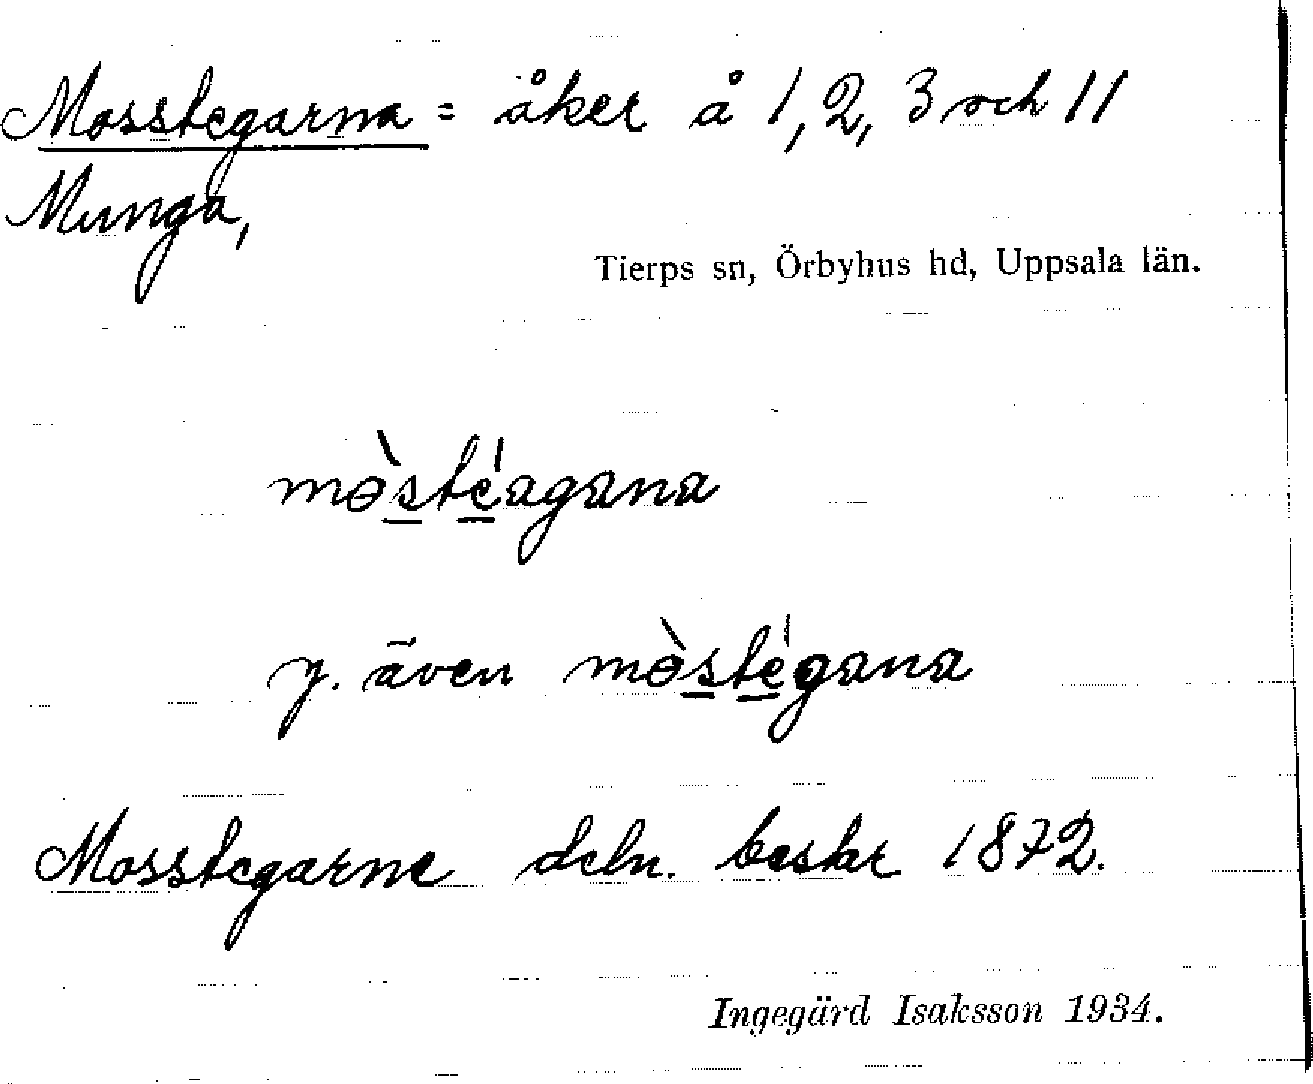 Mosstegarna = åker å 1, 2, 3 och 11
Munga,
Tierps sn, Örbyhus hd, Uppsala län.
mɵ̀s̲té̲agana
y. även mɵ̀s̲té̲gana
Mosstegarne deln. beskr 1872.
Ingegärd Isaksson 1934.